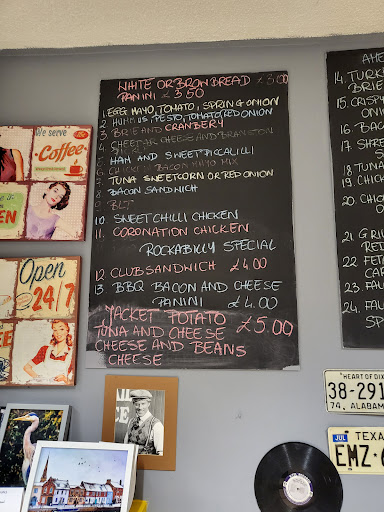 WHITE OR BROWN BREAD £3.00
PANINI £3.50
1. EGG MAYO, TOMATO, SPRING ONION
2. HUMMUS, PESTO, TOMATO, RED ONION
3. BRIE AND CRANBERRY
4. CHEDDAR CHEESE AND BRANSTON
5. HAM AND SWEET PICCALILLI
6. CHICKEN BACON MAYO MIX
7. TUNA SWEETCORN OR RED ONION
8 BACON SANDWICH
9 BLT
10 SWEET CHILLI CHICKEN
11. CORONATION CHICKEN
ROCKABILLY SPECIAL
12 CLUB SANDWICH £4.00
13 BBQ BACON AND CHEESE
PANINI £4.00
JACKET POTATO £5.00
TUNA AND CHEESE
CHEESE AND BEANS
CHEESE
14. TURK
BRIE
15. CRISP
16. BAC
17 SHR
18. TUNA
19. CHIC
20. CHIC
21 GRIL
22 FET
23. FAL
24. FAL
SP
We serve
Coffee
EN
Open
24/7
HEART OF DIX
38-291
74 ALABAM
JUL
TEXA
EMZ